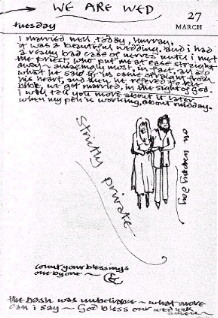 → WE ARE WED
27
tuesday MARCH
I married Nell, today, Hurray,
it was a beautiful wedding, and i had
a really bad case of nerves until i met
the priest, who put me at ease straight
away -
what he said
his heart, and then he
book, we got married, in the sight of God
i will tell you more of it later
when my pen is working, about midday.
Strictly private.
our happy day
count your blessings
one by one -
the bash was unbelievable - what more
can i say - God bless our wed